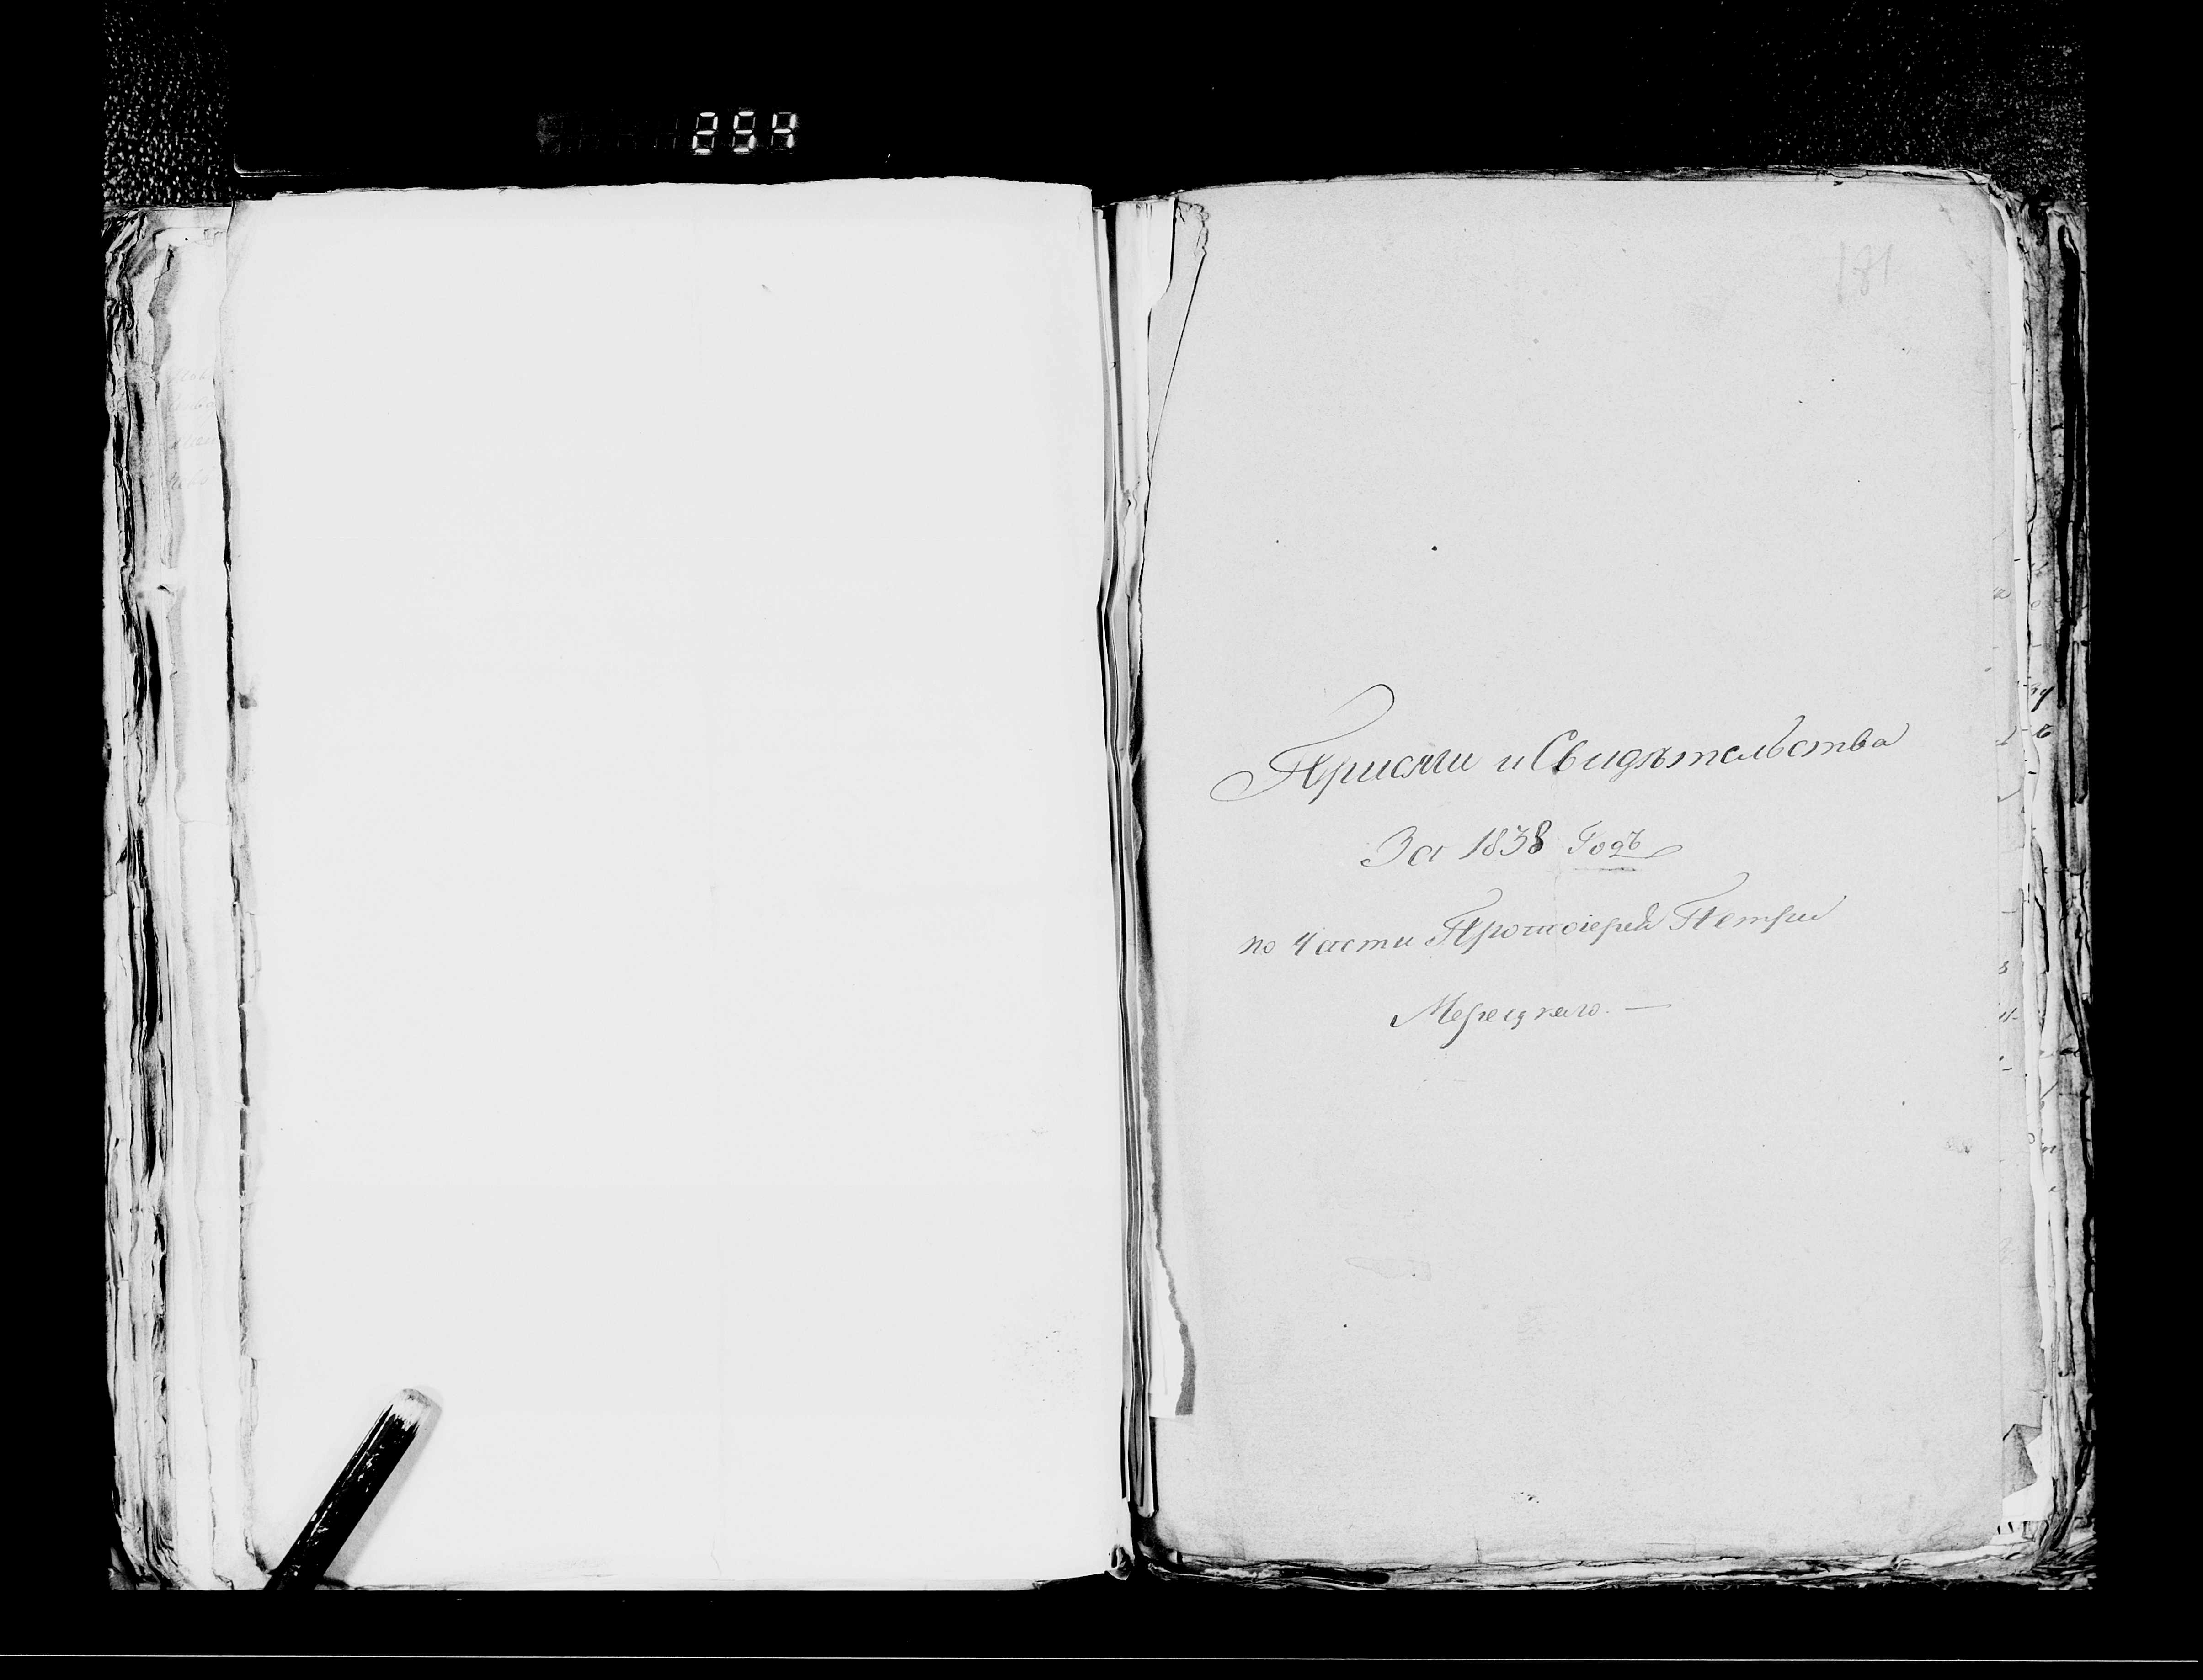 254
181
Присяги и Свидѣтельства
За 1838 Годъ
по Части Протоіерея Петра